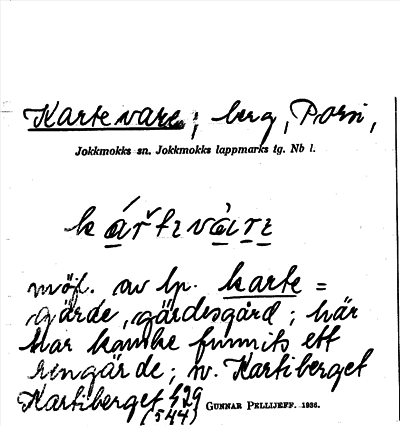 Kartevare; berg, Porsi,
Jokkmokks sn. Jokkmokks lappmarks tg. Nb l.
möjl. av lp. karte =
gärde, gärdesgård; här
har kanske funnits ett
rengärde; sv. Kartiberget
Kartiberget 429
(544) GUNNAR PELLIJEFF. 1936.